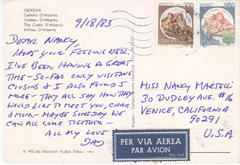 GENOVA
Castello D'Albertis
Château D'Albertis
The Castle D'Albertis
Schloss D'Albertis
9/18/83
DEAR NANCY,
HOPE YOUR FEELING WELL.
I'VE BEEN HAVING A GREAT
TIME - SO FAR ONLY VISITING
COUSINS & I ALSO FOUND 5
MORE - THEY ALL SAY HOW THEY
WOULD LIKE TO MEET YOU,
& MOM - MAYBE SOMEDAY WE
CAN ALL COME TOGETHER -
ALL MY LOVE
DAD
MISS NANCY MARTELLI
30 DUDLEY AVE. #16
VENICE, CALIFORNIA
90291
U.S.A
PER VIA AEREA
PAR AVION